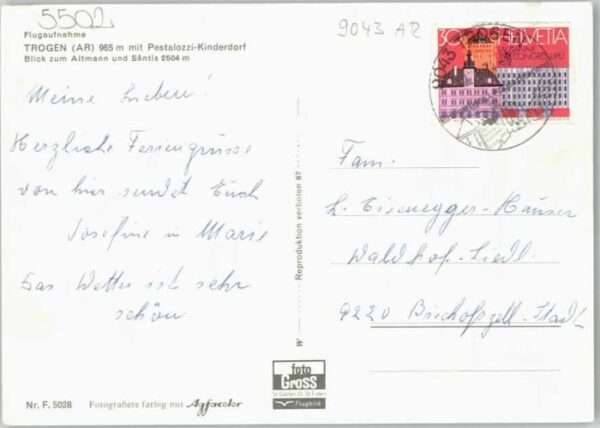 5502
9043 AR
Flugaufnahme
TROGEN (AR) 965 m mit Pestalozzi-Kinderdorf
Blick zum Altmann und Säntis 2504 m
30 HELVETIA
9043 TROGEN
Meine Lieben!
Herzliche Feriengrüsse
von hier sendet Euch
Josefine u Marie
Das Wetter ist sehr
schön
Fam.
Eisenegger-Häuser
Waldhof-Siedl.
9220 Bischofszell-Stadt
Reproduktion verboten 87
W
foto
Gross
St. Gallen
Flugbild
Nr. F. 5028
Fotografiere farbig mit Agfacolor